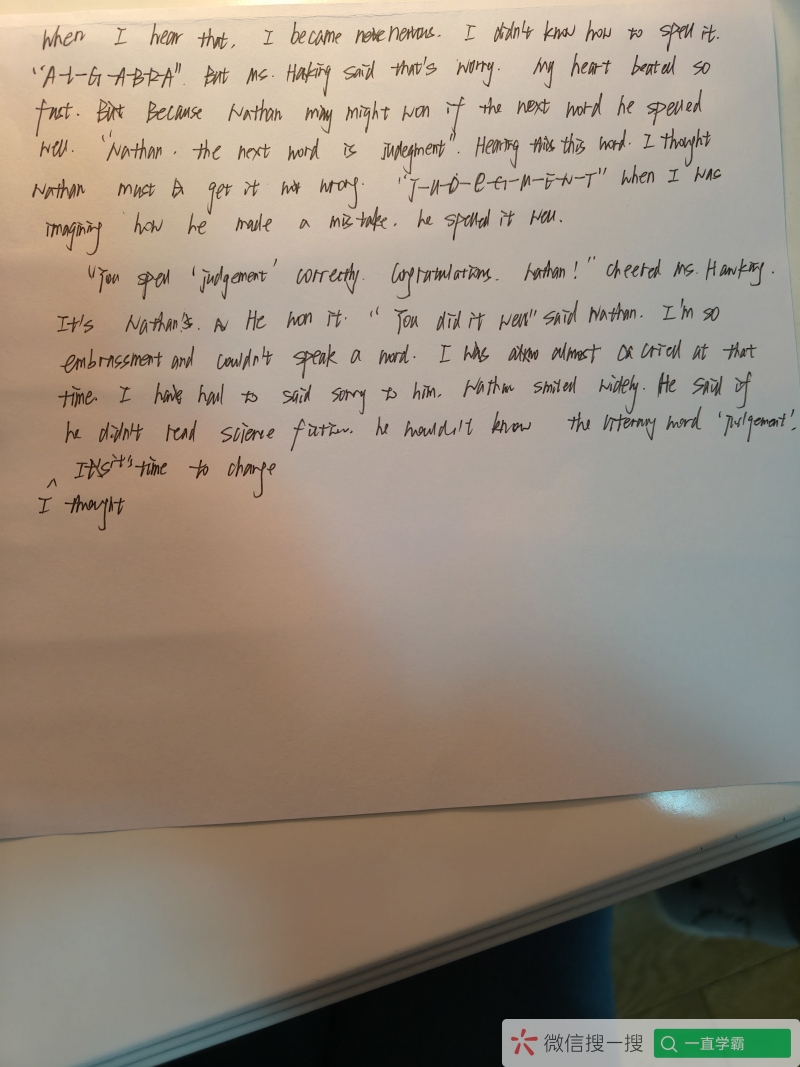 when I hear that, I became nervous. I didn't know how to spell it.
"A-L-G-A-B-R-A". But Ms. Hacking said that's worry. My heart beated so
fast. But Because Nathan may might won if the next word he spelled
well. "Nathan, the next word is judegment". Hearing this this word. I thought
Nathan must get it not wrong. "J-U-D-E-G-M-E-N-T" when I was
imagining how he made a mistake. he spelled it well.
"You spell 'judgement' correctly. Congratulations. Nathan!" cheered Ms. Hawking.
It's Nathan's. He won it. "You did it well" said Nathan. I'm so
embrassment and couldn't speak a word. I was almost cried at that
time. I have had to said sorry to him. Nathan smiled widely. He said if
he didn't read science fiction. he wouldn't know the literary word 'judgement'.
It's it's time to change
^
I thought
微信搜一搜 一直学霸